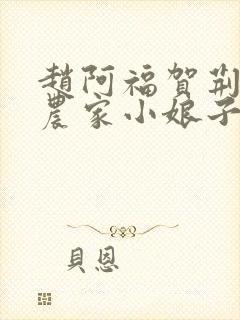 趙阿福賀荊
農家小娘子
貝恩